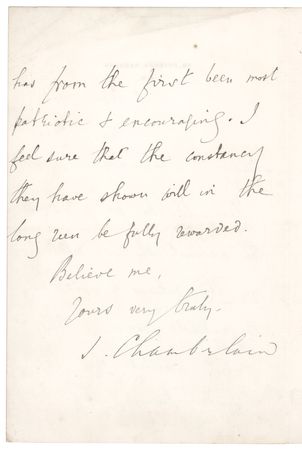 has from the first been most
patriotic & encouraging. I
feel sure that the constancy
they have shown will in the
long run be fully rewarded.
Believe me,
Yours very truly.
J. Chamberlain